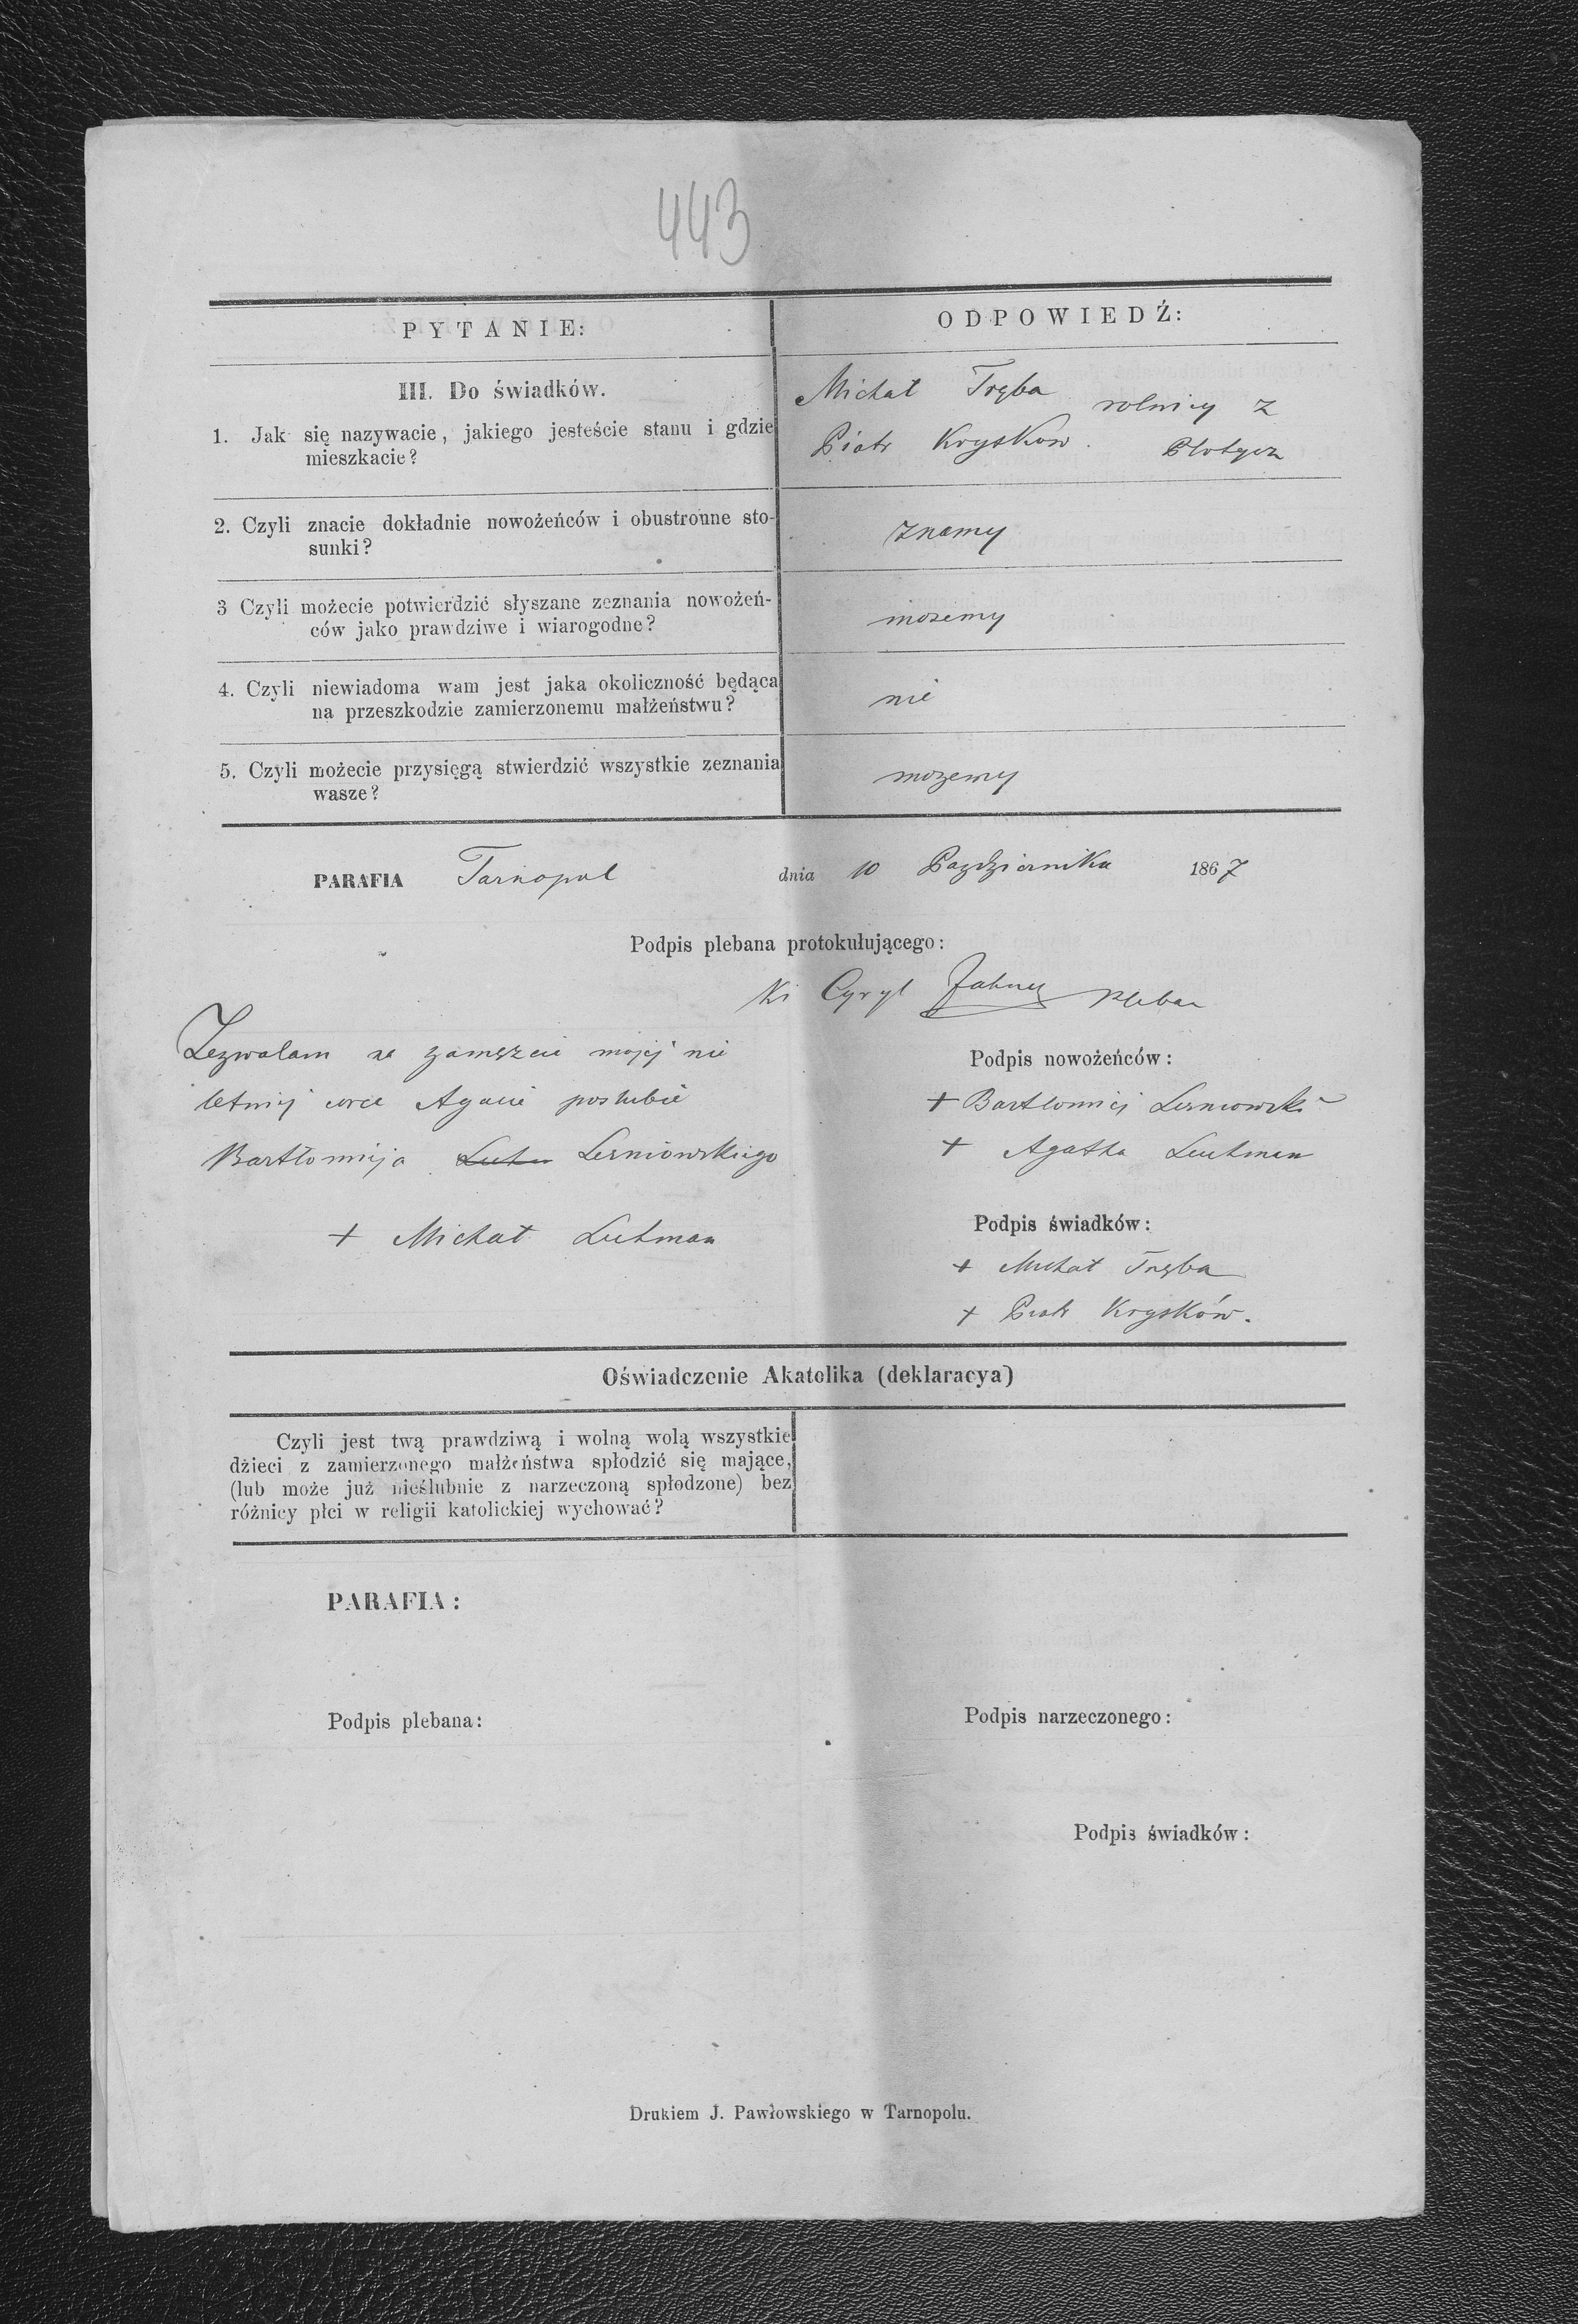 443
PYTANIE:
ODPOWIEDŹ:
III. Do świadków.
1. Jak się nazywacie, jakiego jesteście stanu i gdzie
mieszkacie?
Michał Tręba rolnicy z
Piotr Kryskow. Płotycz
2. Czyli znacie dokładnie nowożeńców i obustronne sto-
sunki?
znamy
3 Czyli możecie potwierdzić słyszane zeznania nowożeń-
ców jako prawdziwe i wiarogodne?
mozemy
4. Czyli niewiadoma wam jest jaka okoliczność będąca
na przeszkodzie zamierzonemu małżeństwu?
nie
5. Czyli możecie przysięgą stwierdzić wszystkie zeznania
wasze?
mozemy
PARAFIA Tarnopol dnia 10 Pazdziernika 1867
Podpis plebana protokułującego:
Cyryl pleban
Zezwalam na zamęzcie mojej nie
letniej corce Agacie poslubic
Bartłomieja Lesniowskiego
+ Michał Lutman
Podpis nowożeńców:
+ Bartłomiej Lesniowski
+ Agatha Leutman
Podpis świadków:
+ Michał Tręba
+ Piotr Krysków.
Oświadczenie Akatolika (deklaracya)
Czyli jest twą prawdziwą i wolną wolą wszystkie
dżieci z zamierzonego małżeństwa spłodzić się mające,
(lub może już nieślubnie z narzeczoną spłodzone) bez
różnicy płci w religii katolickiej wychować?
PARAFIA:
Podpis plebana:
Podpis narzeczonego:
Podpis świadków:
Drukiem J. Pawłowskiego w Tarnopolu.